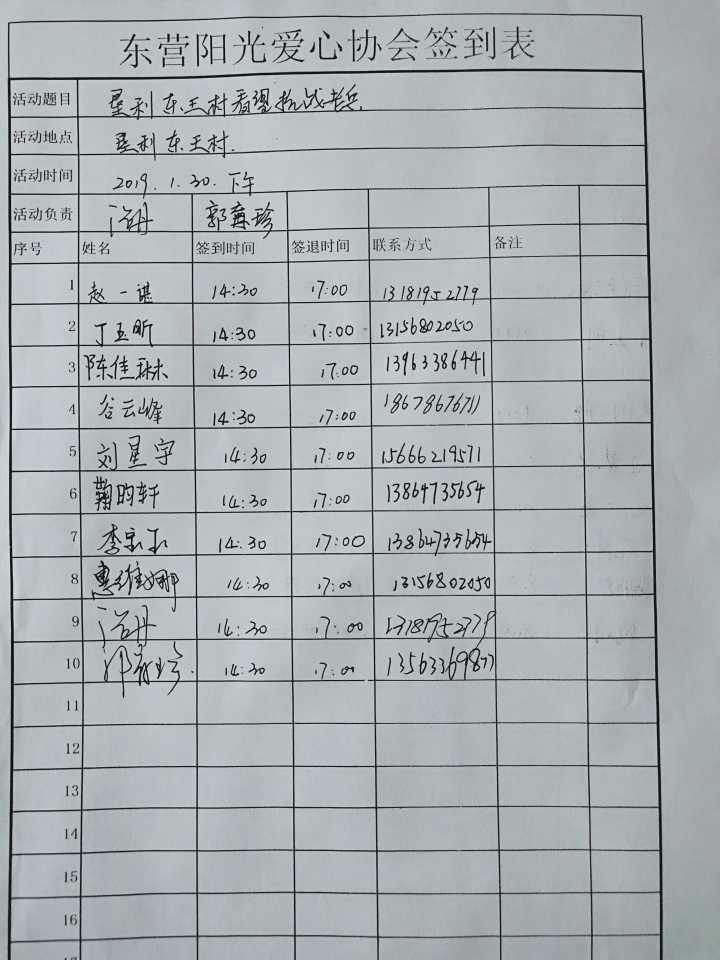 东营阳光爱心协会签到表
活动题目 垦利东王村看望抗战老兵
活动地点 垦利东王村.
活动时间 2019.1.30.下午
活动负责
序号 姓名 签到时间 签退时间 联系方式 备注
1 赵一谌 14:30 17:00 13181952779
2 丁玉昕 14:30 17:00 13156802050
3 陈佳琳 14:30 17:00 13963386441
4 谷云峰 14:30 17:00 18678676711
5 刘星宇 14:30 17:00 15666219571
6 鞠昀轩 14:30 17:00 13864735654
7 14:30 17:00 13864735654
8 惠维娜 14:30 17:00 13156802050
9 14:30 17:00 13181952779
10 14:30 17:00 13563369877
11
12
13
14
15
16